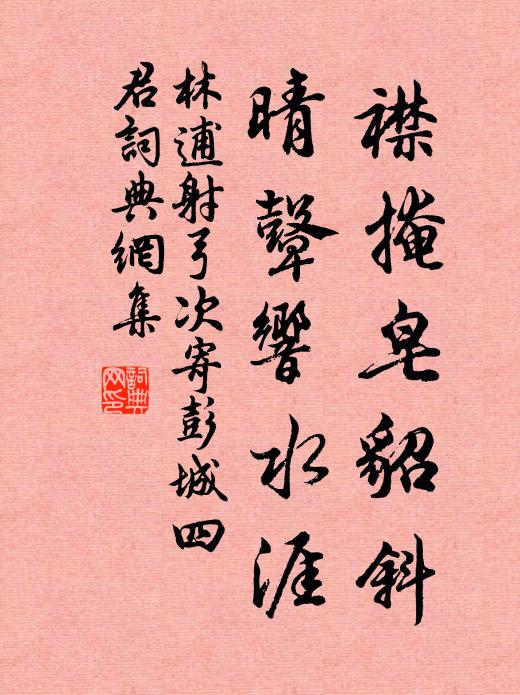 襟掩皂貂斜
晴鼙響水涯
林逋射弓次寄彭城四
君詞典網集
詞典
网印